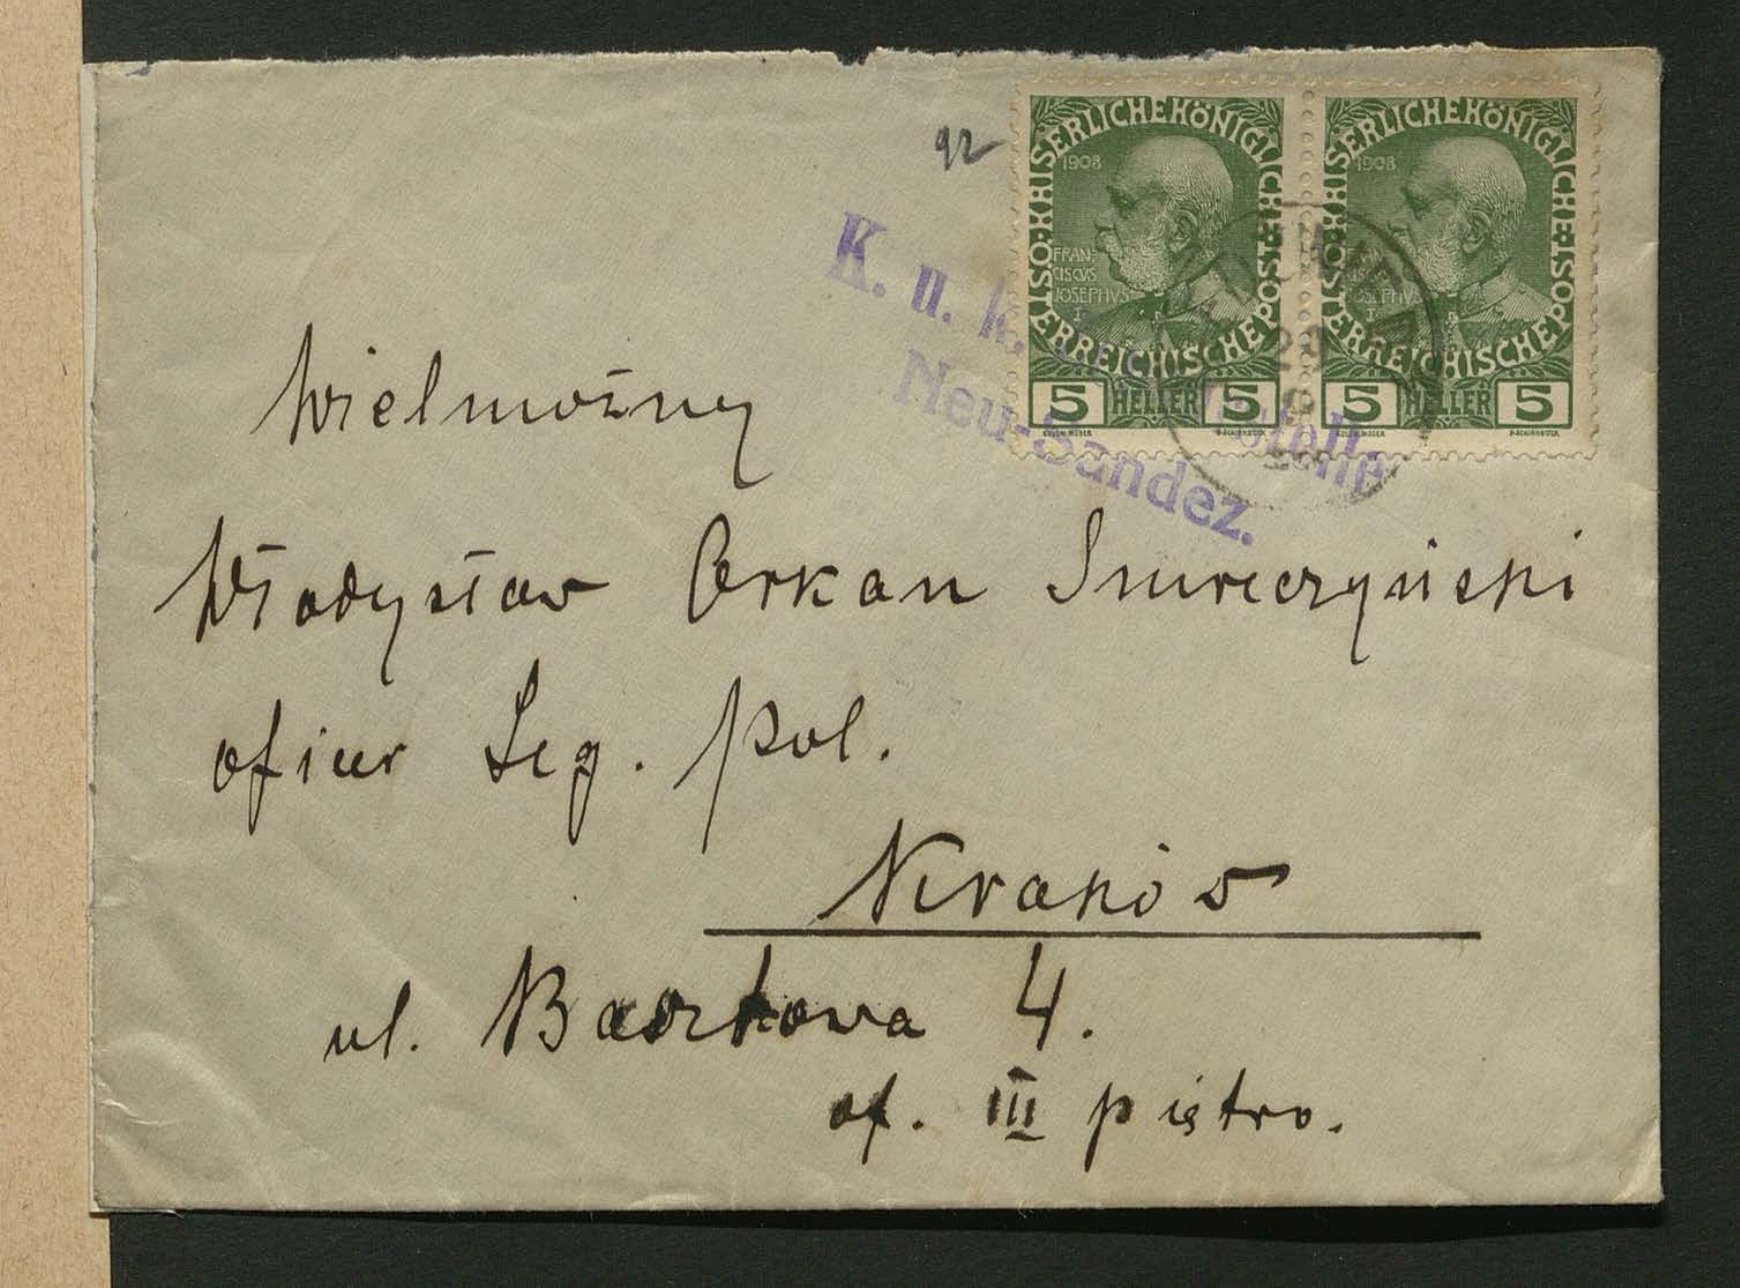 92
KAISERLICHE KÖNIGLICHE ÖSTERREICHISCHE POST
1908
FRAN-
CISCVS
IOSEPHVS
I
5 HELLER 5
KAISERLICHE KÖNIGLICHE ÖSTERREICHISCHE POST
1908
IOSEPHVS
I
5 HELLER 5
K. u. k.
Neu-Sandez.
Wielmożny
Władysław Orkan Smreczyński
oficer Leg. Pol.
Kraków
ul. Basztowa 4.
of. III piętro.